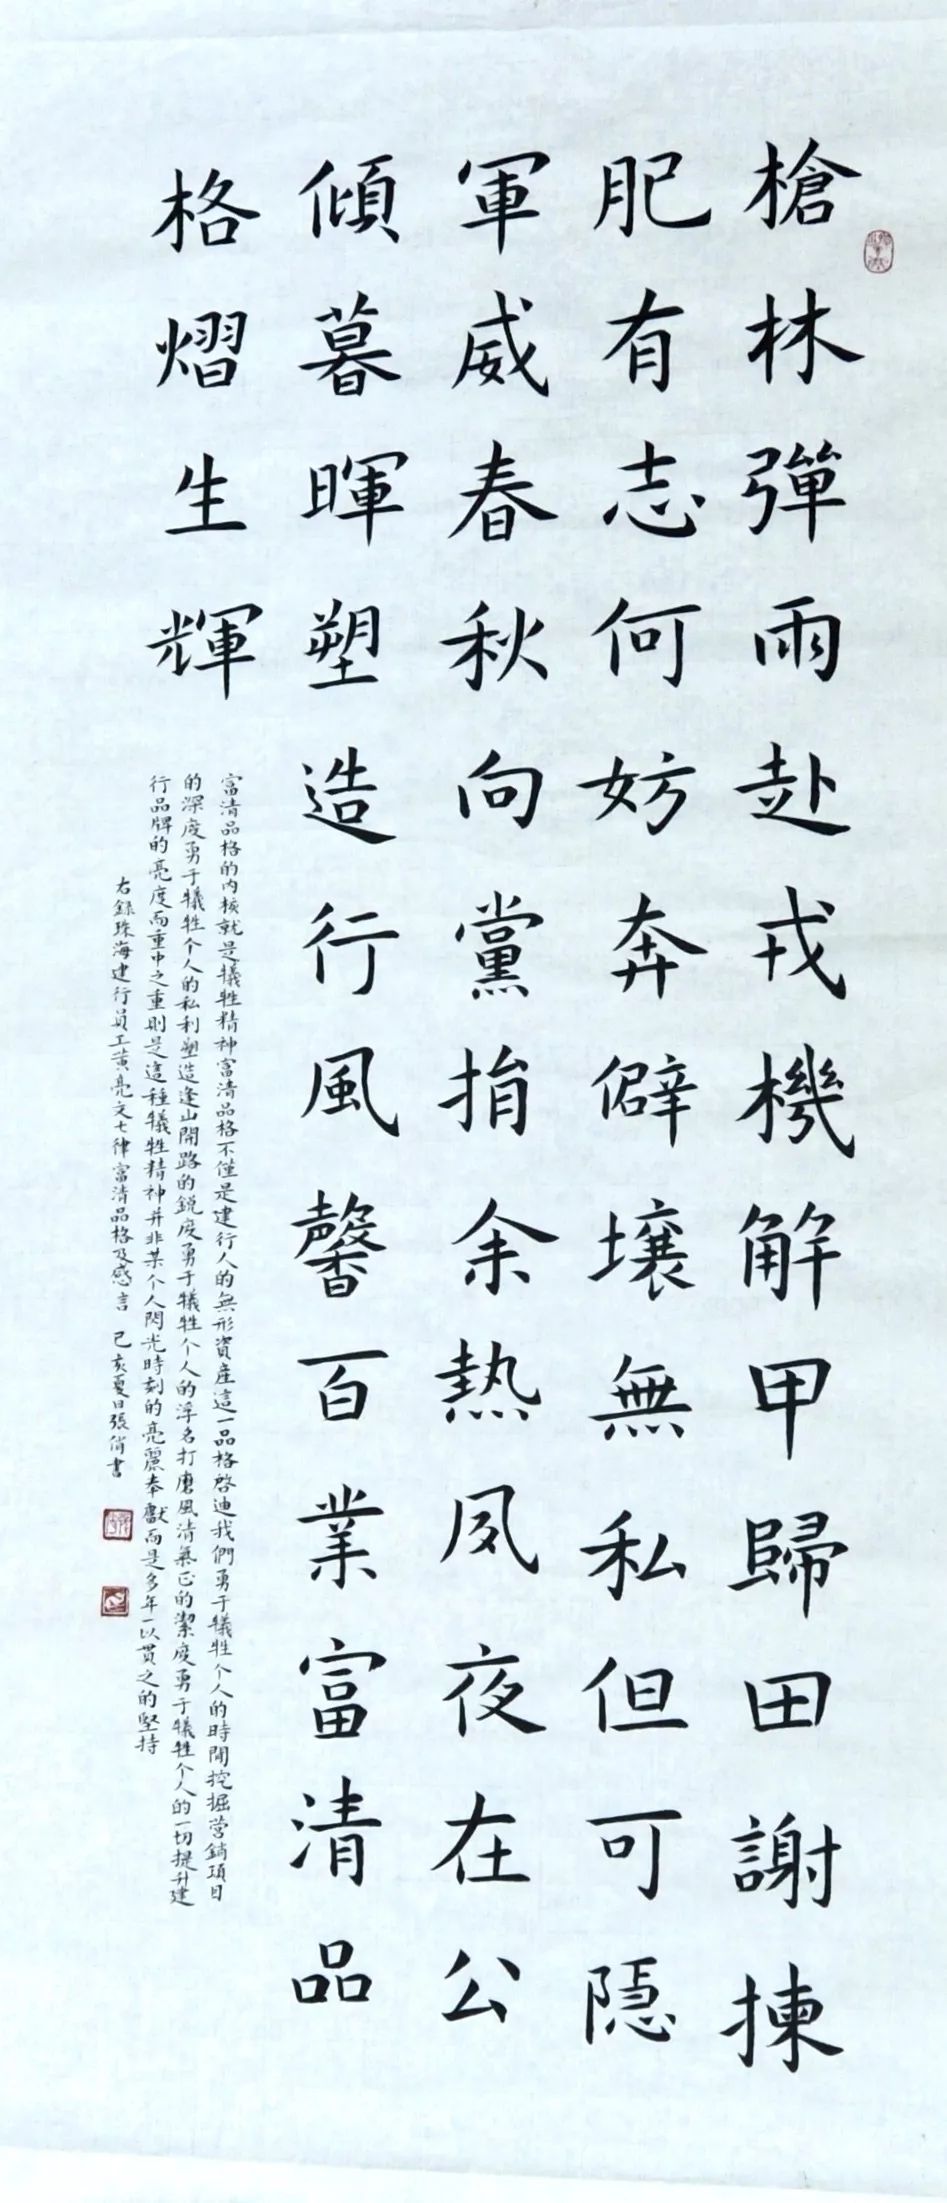 槍林彈雨赴戎機解甲歸田謝揀
肥有志何妨奔僻壤無私但可隱
軍威春秋向黨捐余熱夙夜在公
傾暮暉塑造行風馨百業富清品
格熠生輝
富清品格的内核就是犧牲精神富清品格不僅是建行人的無形資産這一品格啓迪我們勇于犧牲个人的時間挖掘營銷項目
的深度勇于犧牲个人的私利塑造逢山開路的鋭度勇于犧牲个人的浮名打磨風清氣正的潔度勇于犧牲个人的一切提升建
行品牌的亮度而重中之重則是這種犧牲精神并非某个人閃光時刻的亮麗奉獻而是多年一以貫之的堅持
右録珠海建行員工黄亮文七律富清品格及感言 己亥夏日張俏書